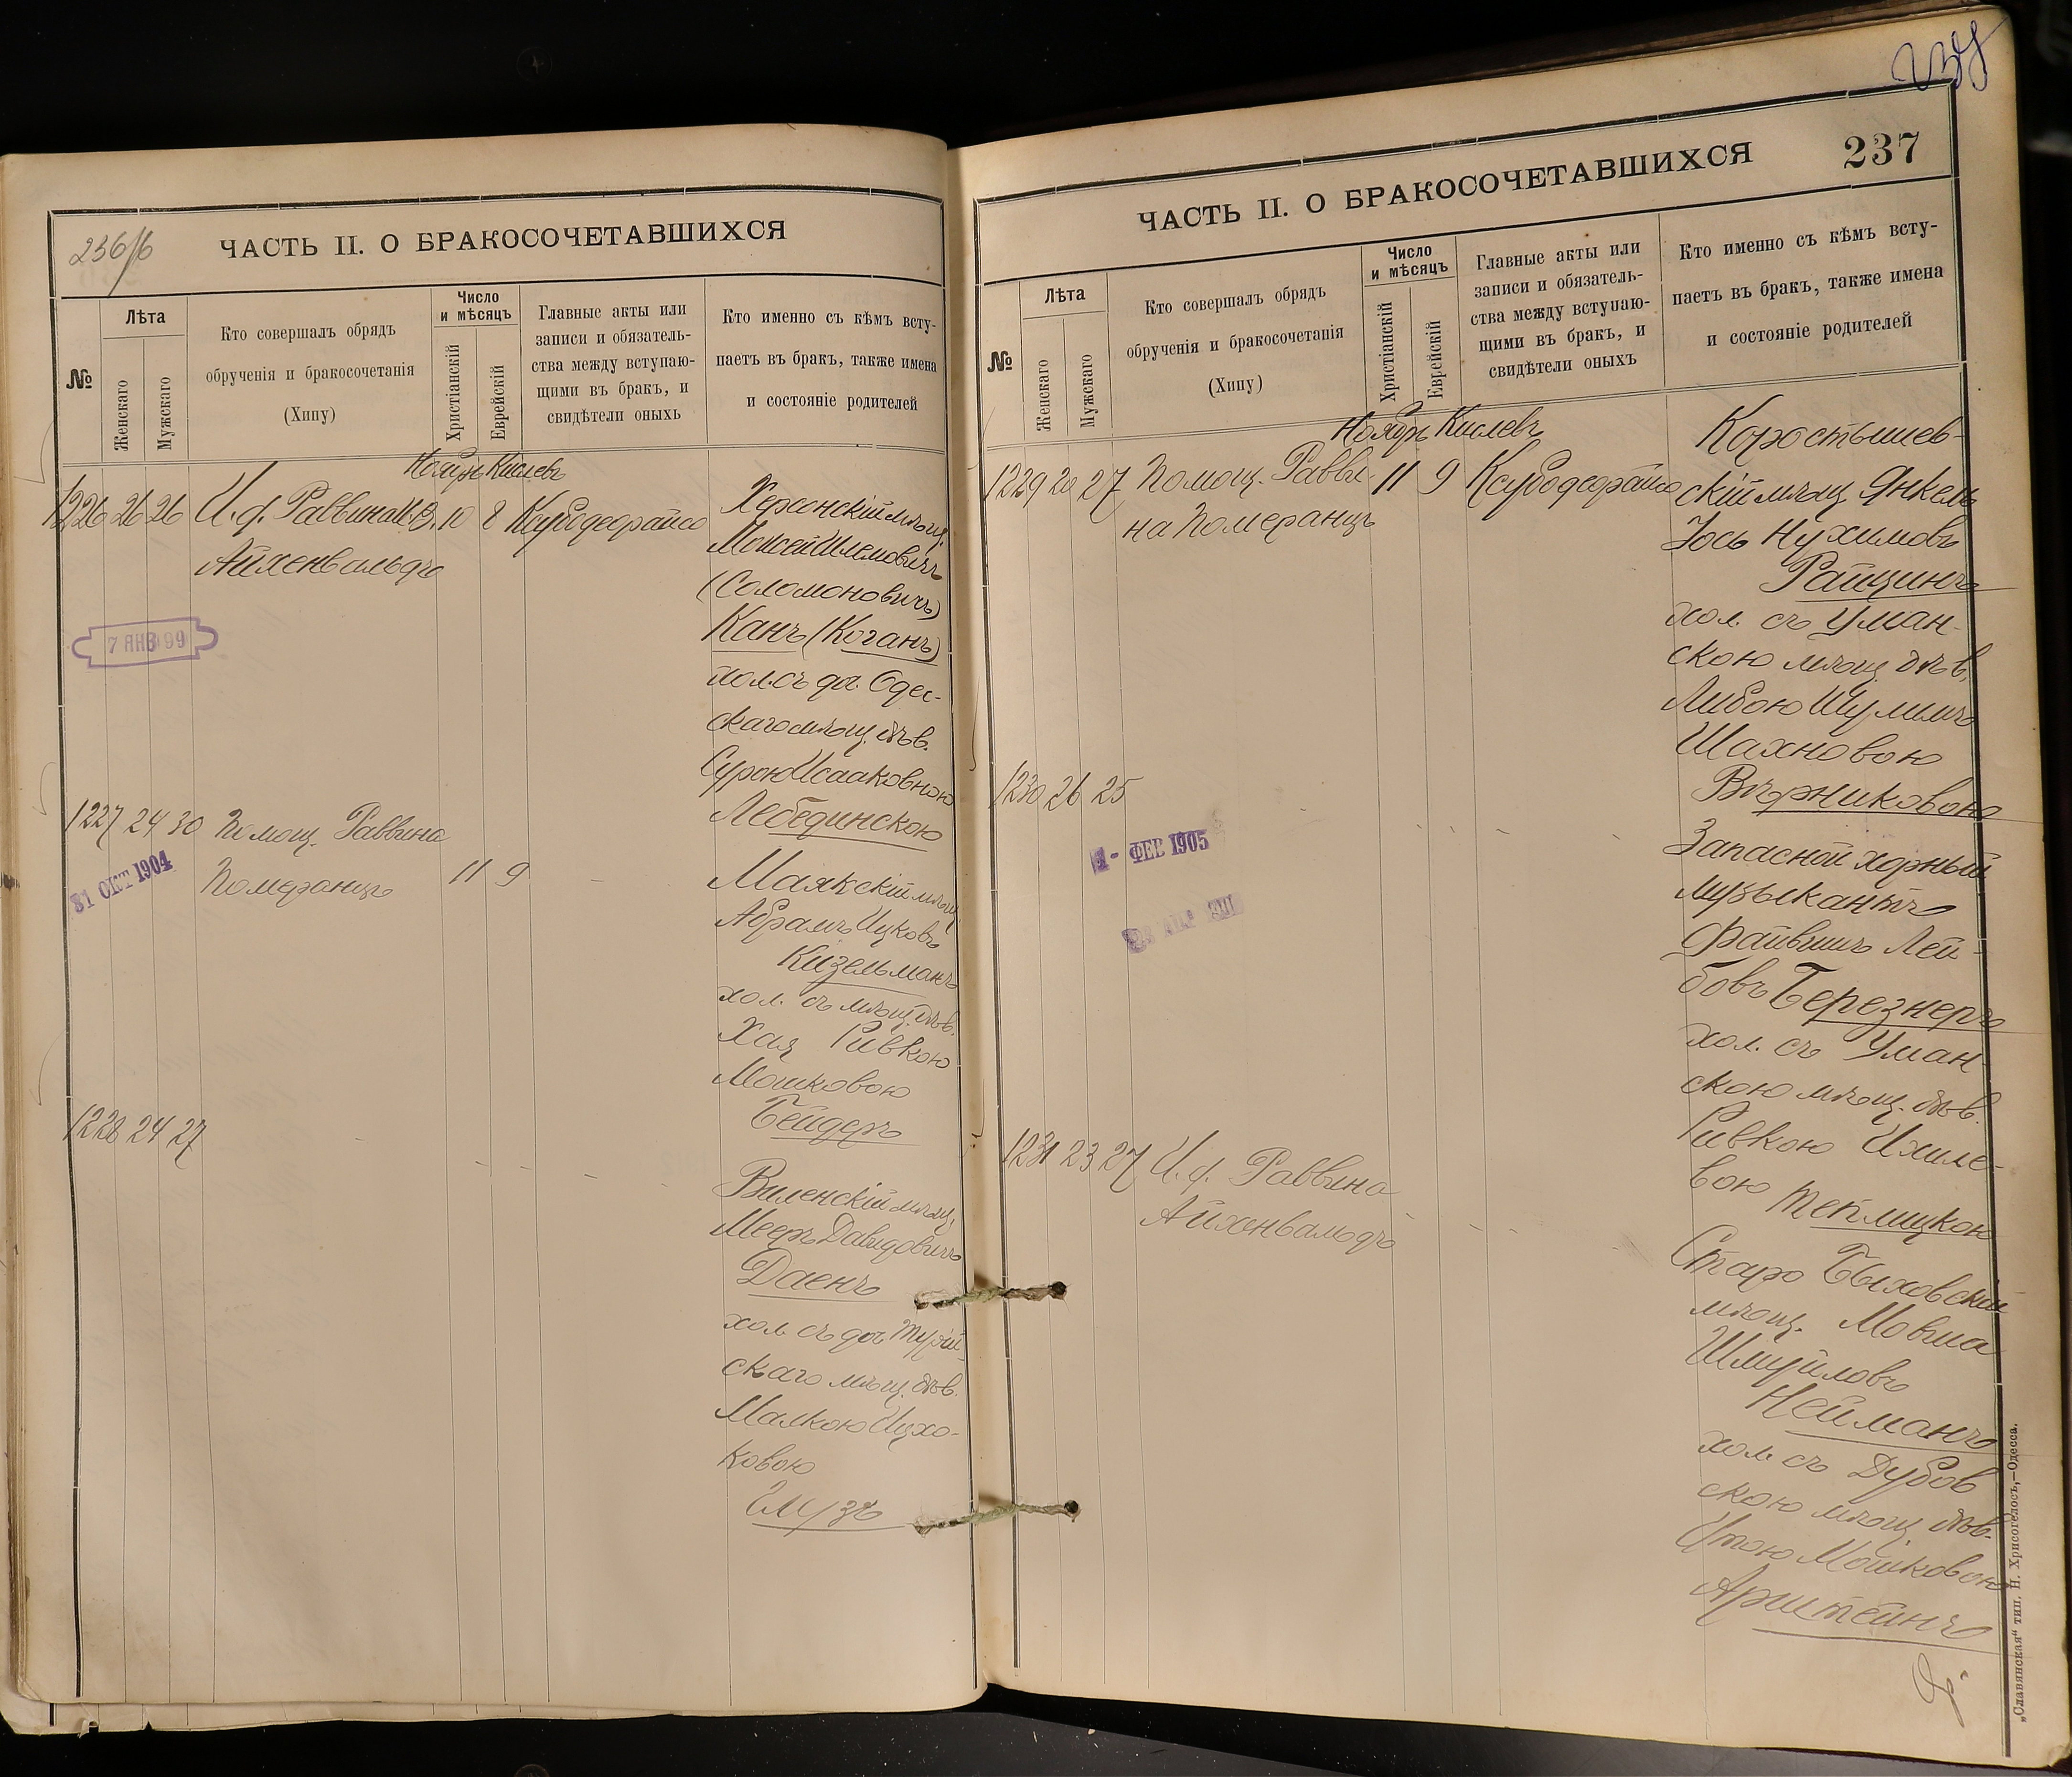 236/б
ЧАСТЬ II. О БРАКОСОЧЕТАВШИХСЯ
№
Лѣта
Женскаго
Мужскаго
Кто совершалъ обрядъ
обрученія и бракосочетанія
(Хипу)
Число
и мѣсяцъ
Христіанскій
Еврейскій
Главные акты или
записи и обязатель-
ства между вступаю-
щими въ бракъ, и
свидѣтели оныхъ
Кто именно съ кѣмъ всту-
паетъ въ бракъ, также имена
и состояніе родителей
Ноябрь Кислевъ
1226 26 26 И. ф. Раввина 10 8
Айхенвальдъ
Херсонскій мѣщ.
Моисей Шлемовичъ
(Соломоновичъ)
Канъ (Коганъ)
хол. съ доч. Одес-
скаго мѣщ. дѣв.
Сурою Исааковною
Лебединскою
7 ЯНВ 99
1227 24 30 Помощ. Раввина
Померанцъ 11 9 –
31 ОКТ 1904
Маякскій мѣщ.
Абрамъ Ицковъ
Кизельманъ
хол. съ мѣщ. дѣв.
Хая Ривкою
Мошковою
Бейдеръ
1228 24 27
Виленскій мѣщ.
Мееръ Давидовичъ
Даенъ
хол. съ доч.
скаго мѣщ. дѣв.
Малкою Ицхо-
ковою
237
ЧАСТЬ II. О БРАКОСОЧЕТАВШИХСЯ
№
Лѣта
Женскаго
Мужскаго
Кто совершалъ обрядъ
обрученія и бракосочетанія
(Хипу)
Число
и мѣсяцъ
Христіанскій
Еврейскій
Главные акты или
записи и обязатель-
ства между вступаю-
щими въ бракъ, и
свидѣтели оныхъ
Кто именно съ кѣмъ всту-
паетъ въ бракъ, также имена
и состояніе родителей
Ноябрь Кислевъ
1229 20 27 Помощ. Равви- 11 9
на Померанцъ
Коростышев-
скій мѣщ. Янкель
Іось Нухимовъ
Райцинъ
хол. съ Уман-
скою мѣщ. дѣв.
Либою Шулимъ
Шахновою
Вѣрниковою
1230 26 25
1- ФЕВ 1905
Запасной хорный
музыкантъ
Файвишъ Лей-
бовъ Березнеръ
хол. съ Уман-
скою мѣщ. дѣв.
Ривкою Ихиле-
вою Теплицкою
1231 23 27 И. ф. Раввина
Айхенвальдъ
Старо Быховскій
мѣщ. Мовша
Шмуйловъ
Нейманъ
хол. съ Дубов
скою мѣщ. дѣв.
Итою Мошковою
Арштейнъ
„Славянская“ тип. Н. Хрисогелосъ,—Одесса.